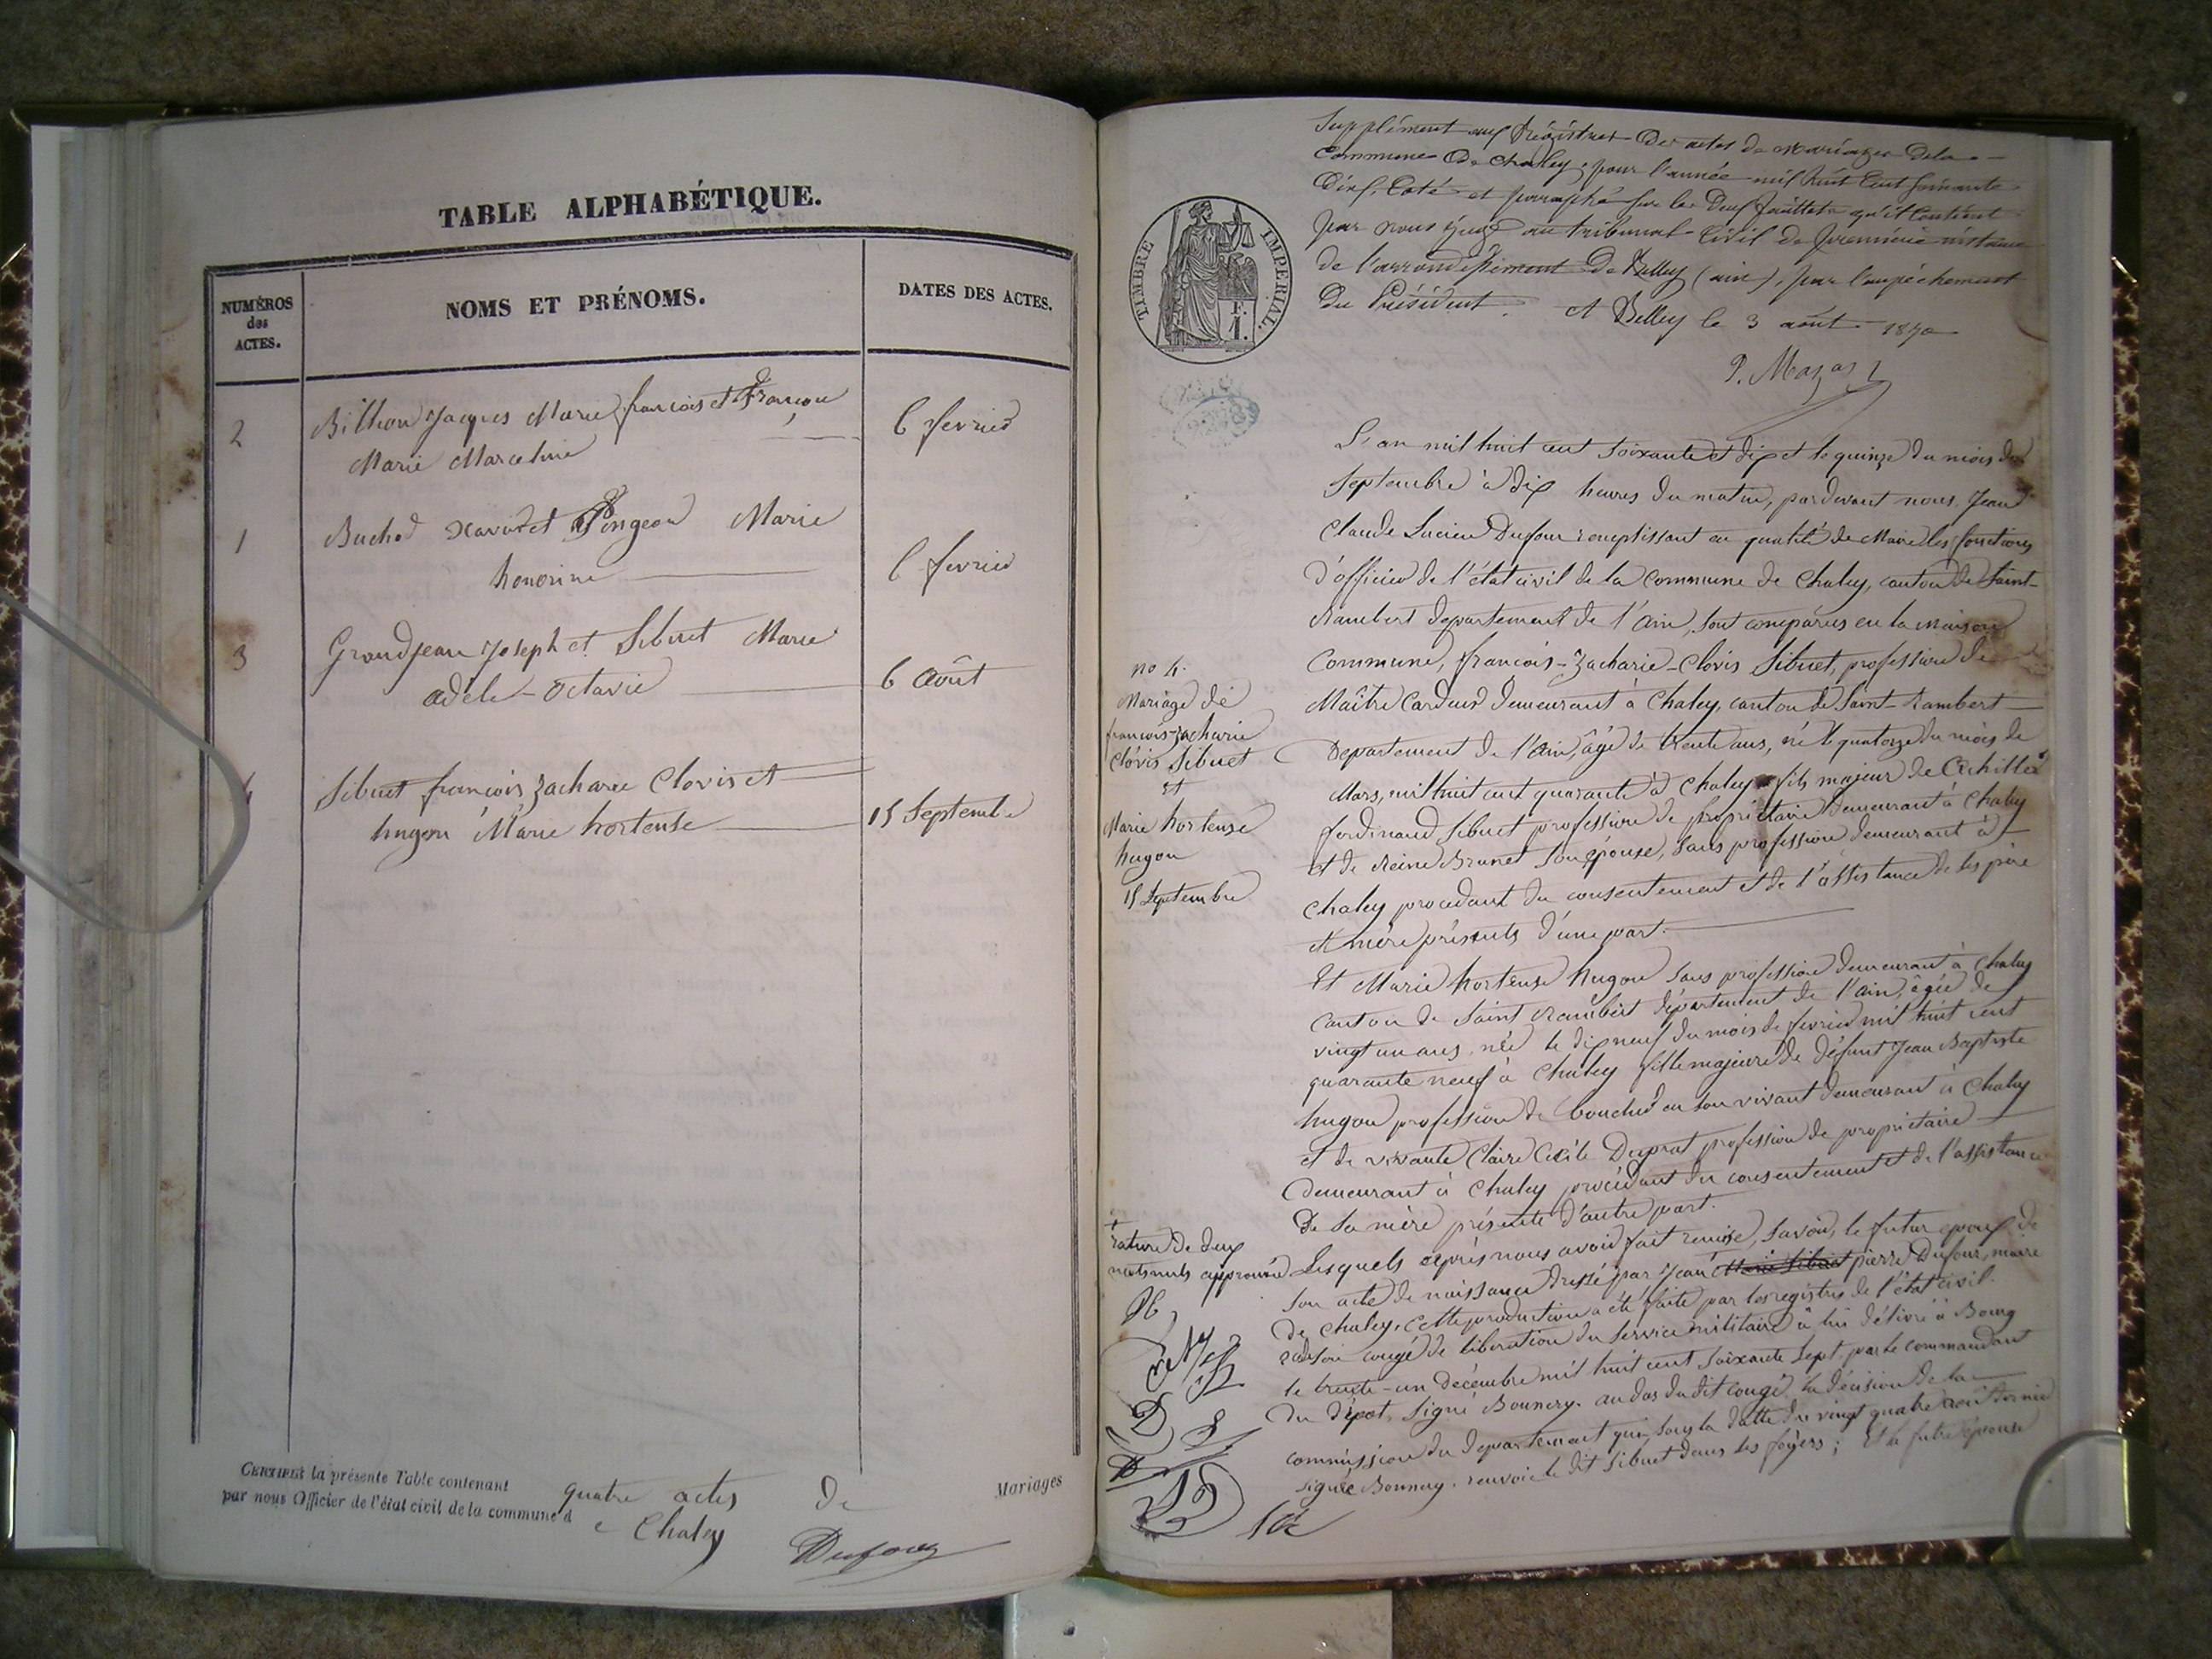 TABLE ALPHABÉTIQUE.
NUMÉROS
des
ACTES.
NOMS ET PRÉNOMS.
DATES DES ACTES.
2
Billion Jacques Marie françois et françon
Marie Marceline
6 fevrier
1
Buchod Xavier et Pongeon Marie
honorine
6 fevrier
3
Grandjean Joseph et Sibuet Marie
adèle-octavie
6 Août
4
Sibuet françois Zacharie Clovis et
hugon Marie hortense
15 Septembre
CERTIFIÉE la présente Table contenant quatre actes de Mariages
par nous Officier de l'état civil de la commune d e Chaley
Dufour
Supplément aux Régistres des actes de mariages de la
commune de Chaley, pour l'année mil huit cent soixante
dix, coté et paraphé sur les deux feuillets qu'il contient
par nous juge au tribunal civil de première instance
de l'arrondissement de Belley (ain), par l'empêchement
du Président. A Belley le 3 août 1870
P. Mazas
TIMBRE IMPÉRIAL.
F.
1.
L'an mil huit cent soixante et dix et le quinze du mois de
Septembre à dix heures du matin, pardevant nous Jean
Claude Lucien Dufour remplissant en qualité de Maire les fonctions
d'officier de l'état civil de la commune de Chaley, canton de Saint-
Rambert departement de l'Ain, sont comparus en la Maison
Commune, françois-Zacharie-Clovis Sibuet, profession de
Maître Cardeur demeurant à Chaley, canton de Saint-Rambert
Departement de l'Ain, âgé de trente ans, né le quatorze du mois de
Mars, mil huit cent quarante à Chaley fils majeur de Achille
ferdinand Sibuet profession de propriétaire demeurant à Chaley
et de Reine Brunet son épouse, sans profession demeurant à
Chaley procedant du consentement et de l'assistance de ses père
et mère présents d'une part.
Et Marie hortense hugon sans profession demeurant à Chaley
canton de Saint Rambert département de l'Ain, âgée de
vingt un ans, née le dix neuf du mois de fevrier mil huit cent
quarante neuf à Chaley fille majeure de défunt Jean Baptiste
hugon profession de boucher en son vivant demeurant à Chaley
et de vivante Claire Cécile Duprat profession de propriétaire
demeurant à Chaley procédant du consentement et de l'assistance
de sa mère présente d'autre part.
Lesquels après nous avoir fait remise, savoir, le futur époux de
son acte de naissance dressé par Jean Marie Sibuet pierre Dufour, maire
de Chaley. Cette production a été faite par les registres de l'état civil.
2° de son congé de libération du service militaire à lui délivré à Bourg
le trente-un décembre mil huit cent soixante sept par le commandant
du dépot, signé Bonnery. au dos du dit congé la décision de la
commission du departement qui, sous la datte du vingt quatre août dernier
signée Bonnery. renvoie le dit Sibuet dans ses foyers; Et la future épouse
no 4.
Mariage de
françois-Zacharie
Clovis Sibuet
et
Marie hortense
hugon
15 Septembre
rature de deux
mots nuls approuvée